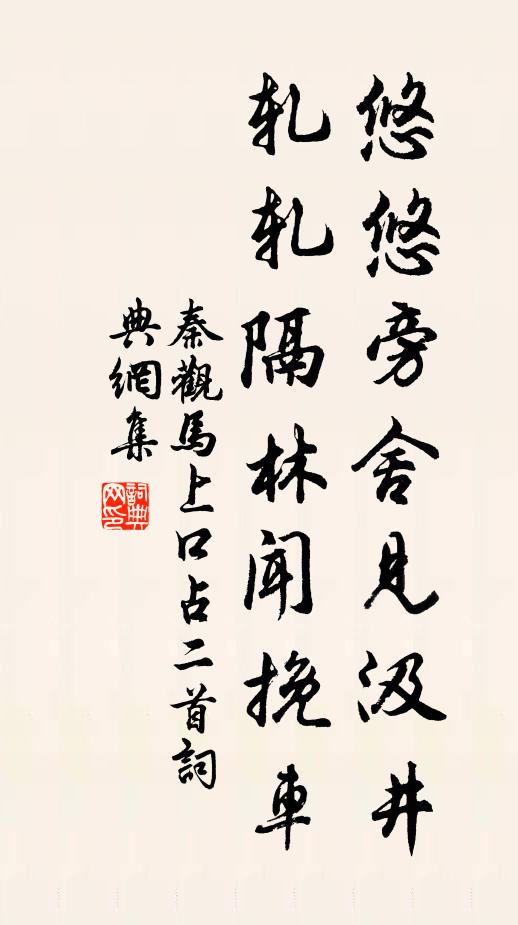 悠悠旁舍見汲井
軋軋隔林聞挽車
秦觀馬上口占二首詞
典網集
詞典網印